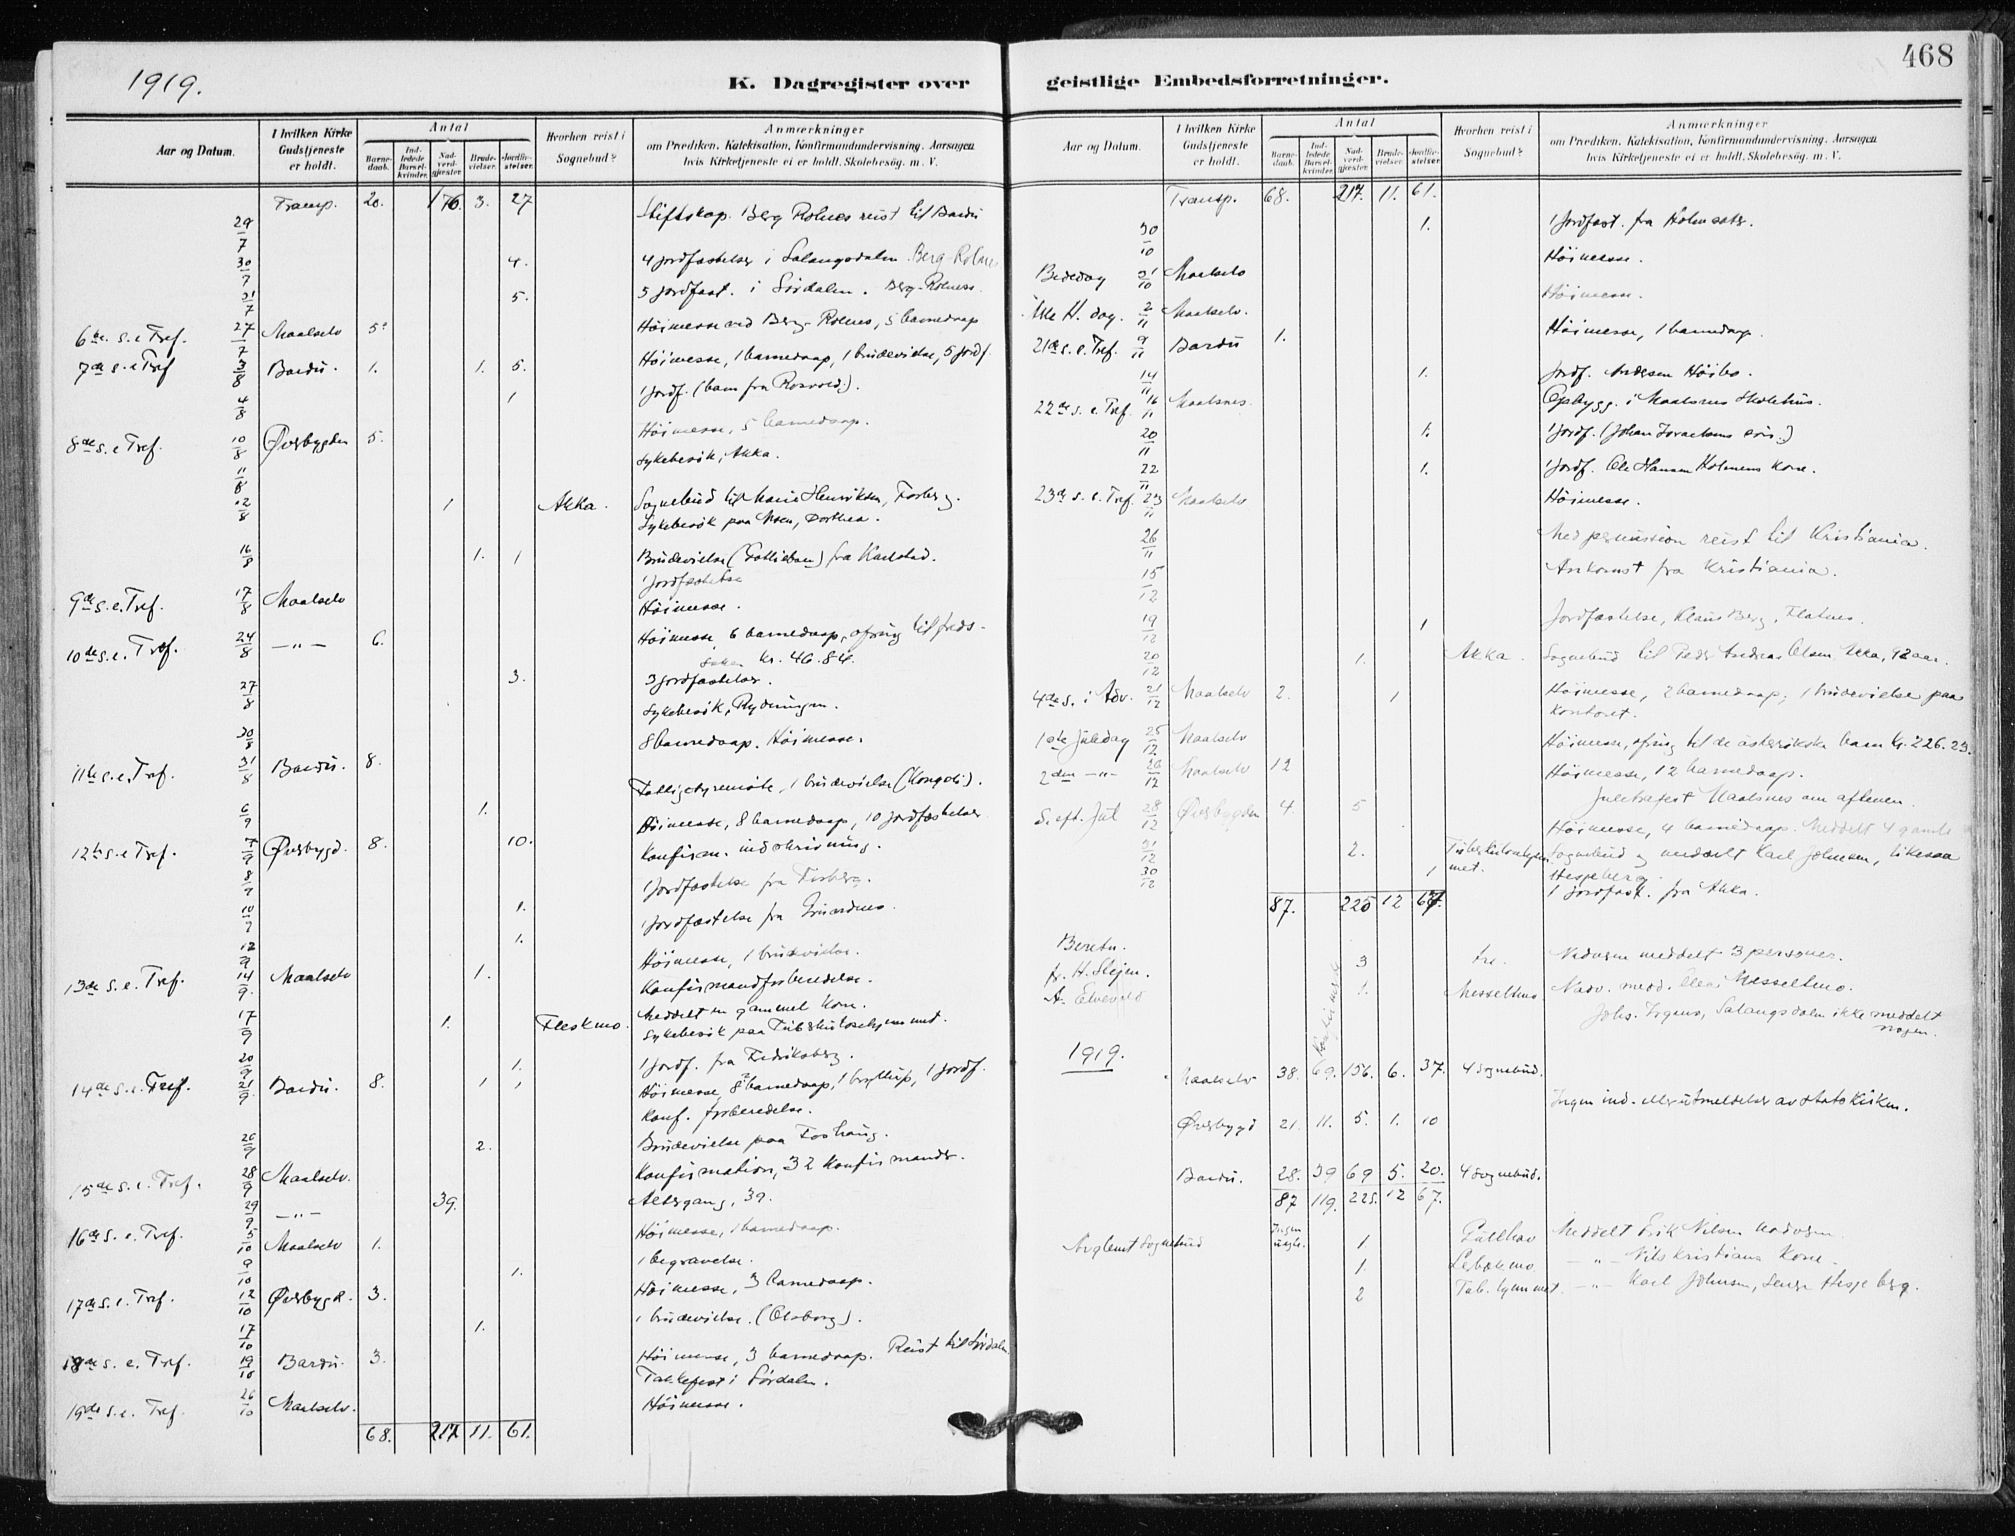 1919.
K. Dagregister over
Aar og Datum.
I hvilken Kirke Gudstjeneste er holdt.
Antal
Barne-daab.
Ind-ledede Barsel-kvinder.
Nad-verd-gjæster.
Brude-vielser.
Jordfæ-stelser.
Hvorhen reist i Sognebud?
Anmærkninger
om Prædiken, Katekisation, Konfirmandundervisning. Aarsagen
hvis Kirketjeneste ei er holdt. Skolebesög. m. V.
Transp. 20. 176. 3. 27
29/7 Stiftskap. Berg Rolnes reist til Bardu
30/7 4. 4 jordfæstelser i Salangsdalen Berg-Rolnes
31/7 5. 5 jordfæst. i Sördalen. Berg-Rolnes.
6te s. e. Tref. 27/7 Maalselv 5 Höimesse ved Berg-Rolnes, 5 barnedaap
7de s. e. Tref 3/8 Bardu. 1. 1. 5. Höimesse, 1 barnedaap, 1 brudevielse, 5 jordf.
4/8 1 1 jordf. (barn fra Rosvold.).
8de s. e. Tref. 10/8 Överbygden 5. Höimesse, 5 barnedaap.
11/8 Sykebesök, Akka.
12/8 1 Akka. Sognebud til Marie Henriksen, Fosberg.
Sykebesök paa Moen, Dorthea.
16/8 1. 1 Brudevielse (Gottliebsen) fra Karlstad.
1 jordfæstelse
9de s. e. Tref. 17/8 Maalselv Höimesse.
10de s. e. Tref. 24/8 —"— 6. Höimesse, 6 barnedaap, ofring til freds-
saken kr. 46.84.
27/8 3. 3 jordfæstelser.
30/8 Sykebesök, Rydningen.
11te s. e. Tref. 31/8 Bardu. 8. 8 barnedaap. Höimesse.
6/9 1. Fattigstyremöte, 1 brudevielse (Kongsli).
12te s. e. Tref. 7/9 Överbygd. 8. 10. Höimesse, 8 barnedaap, 10 jordfæstelser
8/9 Konfirm. indskrivning.
10/9 1. 1 jordfæstelse fra Fosberg.
12/9 1. 1 jordfæstelse fra Grundnes.
13de s. e. Tref. 14/9 Maalselv 1. Höimesse, 1 brudevielse.
Konfirmandforberedelse.
17/9 1. Fleskmo. Meddelt en gammel kone.
Sykebesök paa Tuberkulosehjemmet.
20/9 1. 1 jordf. fra Fredriksberg.
14de s. e. Tref. 21/9 Bardu. 8. 1 1 Höimesse, 8 barnedaap, 1 bryllup, 1 jordf.
Konf. forberedelse.
26/9 2. Brudevielse paa Foshaug.
15de s. e. Tref. 28/9 Maalselv. Konfirmation, 32 konfirmander.
29/9 —"— 39. Altergang, 39.
16de s. e. Tref. 5/10 Maalselv 1. Höimesse, 1 barnedaap.
9/10 1. 1 begravelse.
17de s. e. Tref. 12/10 Överbygd. 3. Höimesse, 3 barnedaap.
17/10 1. 1 brudevielse. (Olsborg).
18de s. e. Tref. 19/10 Bardu. 3. Höimesse, 3 barnedaap. Reist til Sördalen.
Takkefest i Sördalen.
19de s. e. Tref. 26/10 Maalselv. Höimesse.
68. 217. 11. 61.
468
geistlige Embedsforretninger.
Aar og Datum.
I hvilken Kirke Gudstjeneste er holdt.
Antal
Barne-daab.
Ind-ledede Barsel-kvinder.
Nad-verd-gjæster.
Brude-vielser.
Jordfæ-stelser.
Hvorhen reist i Sognebud?
Anmærkninger
om Prædiken, Katekisation, Konfirmandundervisning. Aarsagen
hvis Kirketjeneste ei er holdt. Skolebesög. m. V.
Transp. 68. 217. 11. 61.
30/10 1. 1 jordfæst. fra Holmsæter.
Bededag 31/10 Maalselv Höimesse.
Alle H. dag. 2/11 Maalselv. Höimesse.
21de s. e. Tref. 9/11 Bardu 1. Höimesse, 1 barnedaap.
14/11 1. Jordf. Andersen Höibo.
22de s. e. Tref. 16/11 Maalsnes. Opbygg. i Maalsnes skolehus.
20/11 1. 1 jordf. (Johan Israelsens sön.)
22/11 1. 1 jordf. Ole Hansen Holmens kone.
23de s. e. Tref. 23/11 Maalselv Höimesse.
26/11 Med permission reist til Kristiania.
15/12 Ankomst fra Kristiania.
19/12 1 Jordfæstelse, Klaus Berg, Flatnes.
20/12 1. Akka. Sognebud til Peder Andreas Olsen Akka, 92 aar.
4de s. i Adv. 21/12 Maalselv 2. 1 Höimesse, 2 barnedaap, 1 brudevielse paa
kontoret.
1ste juledag 25/12 Maalselv Höimesse, ofring til de österrikske barn kr. 226.23.
2den —"— 26/12 Maalselv 12 Höimesse, 12 barnedaap.
Juletræfest Maalsnes om aftenen.
S. eft. Jul 28/12 Överbygden 4. 5 Höimesse, 4 barnedaap. Meddelt 4 gamle
31/12 2. Tuberkulosehjem- Sognebud og meddelt Karl Johnsen, likesaa
met. Hespeberg.
30/12 1 1 jordfæst. fra Akka.
87. 225 12 67.
Beretn.
fr. H. Slejm. 3 Nadveren meddelt 3 personer.
A. Elvevold 1. Messeltmo Nadv. medd. Messeltmo.
Johs. Irgens, Salangsdalen ikke meddelt
nogen.
1919.
Maalselv 38. 69. 156. 6. 37. 4 sognebud.
Ingen ind- eller utmeldelser av statskirken.
Överbygd 21. 11. 5. 1. 10
Bardu. 28. 39 69 5. 20. 4 sognebud.
87 119. 225. 12 67.
Avglemt sognebud 1 Meddelt Erik Nilsen nadveren.
1. —"— Nils Kristians kone.
2 Tub. hjemmet. —"— Karl Johnsen,